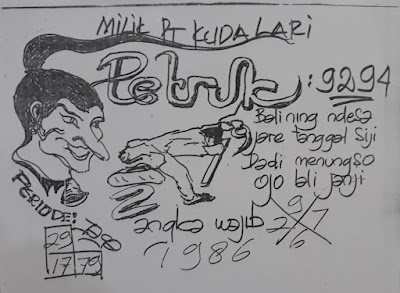 MILIK PT KUDA LARI
Petruk : 9294
Balining ndesa
jare tanggal siji
Dadi menungso
ojo bli janji
PERIODE:
29
17 79
angka wajib
1986
9
2 7
6